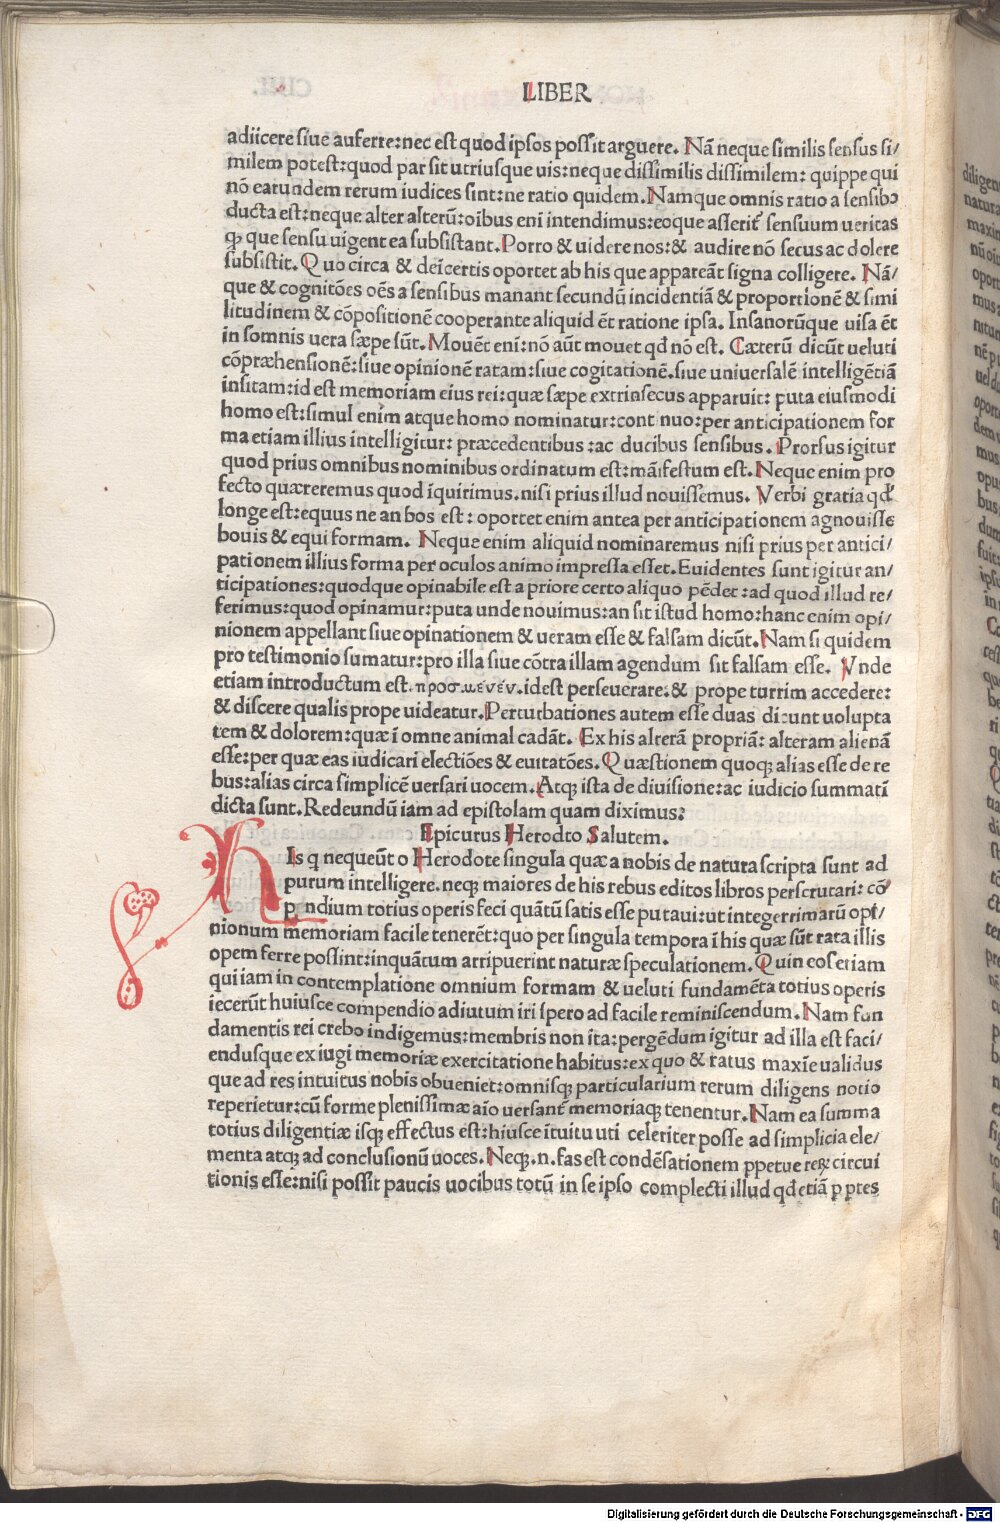 LIBER
adiicere siue auferre: nec est quod ipsos possit arguere. Nā neque similis sensus si/
milem potest: quod par sit utriusque uis: neque dissimilis dissimilem: quippe qui
nō earundem rerum iudices sint: ne ratio quidem. Namque omnis ratio a sensibꝰ
ducta est: neque alter alterū: oībus enī intendimus: eoque asserit̄ sensuum ueritas
ꝙ que sensu uigent ea subsistant. Porro & uidere nos: & audire nō secus ac dolere
subsistit. Quo circa & de īcertis oportet ab his que appareāt signa colligere. Nā/
que & cognitōes oēs a sensibus manant secundū incidentiā & proportionē & simi
litudinem & cōpositionē cooperante aliquid ēt ratione ipsa. Insanorūque uisa ēt
in somnis uera sæpe sūt. Mouēt enī: nō aūt mouet qđ nō est. Cæterū dicūt ueluti
cōpræhensionē: siue opinionē ratam: siue cogitationē. siue uniuersalē intelligētiā
insitam: id est memoriam eius rei: quæ sæpe extrinsecus apparuit: puta eiusmodi
homo est: simul enim atque homo nominatur: cont nuo: per anticipationem for
ma etiam illius intelligitur: præcedentibus: ac ducibus sensibus. Prorsus igitur
quod prius omnibus nominibus ordinatum est: māifestum est. Neque enim pro
fecto quæreremus quod īquirimus. nisi prius illud nouissemus. Verbi gratia qđ
longe est: equus ne an bos est: oportet enim antea per anticipationem agnouisse
bouis & equi formam. Neque enim aliquid nominaremus nisi prius per antici/
pationem illius forma per oculos animo impressa esset. Euidentes sunt igitur an/
ticipationes: quodque opinabile est a priore certo aliquo pēdet: ad quod illud re/
ferimus: quod opinamur: puta unde nouimus: an sit istud homo: hanc enim opi/
nionem appellant siue opinationem & ueram esse & falsam dicūt. Nam si quidem
pro testimonio sumatur: pro illa siue cōtra illam agendum sit falsam esse. Vnde
etiam introductum est. προσμένέν. idest perseuerare: & prope turrim accedere:
& discere qualis prope uideatur. Perturbationes autem esse duas dicunt uolupta
tem & dolorem: quæ ī omne animal cadāt. Ex his alterā propriā: alteram alienā
esse: per quæ eas iudicari electiōes & euitatōes. Quæstionem quoqꝫ alias esse de re
bus: alias circa simplicē uersari uocem. Atqꝫ ista de diuisione: ac iudicio summatī
dicta sunt. Redeundū iam ad epistolam quam diximus:
Epicurus Herodto Salutem.
HIs q nequeūt o Herodote singula quæ a nobis de natura scripta sunt ad
purum intelligere. neqꝫ maiores de his rebus editos libros perscrutari: cō
p ndium totius operis feci quātū satis esse putaui: ut integerrimarū opi/
nionum memoriam facile tenerēt: quo per singula tempora ī his quæ sūt rata illis
opem ferre possint: inquātum arripuerint naturæ speculationem. Quin eos etiam
qui iam in contemplatione omnium formam & ueluti fundamēta totius operis
iecerūt huiusce compendio adiutum iri spero ad facile reminiscendum. Nam fun
damentis rei crebo indigemus: membris non ita: pergēdum igitur ad illa est faci/
endusque ex iugi memoriæ exercitatione habitus: ex quo & ratus maxīe ualidus
que ad res intuitus nobis obueniet: omnisqꝫ particularium rerum diligens notio
reperietur: cū forme plenissimæ aīo uersant̄ memoriaqꝫ tenentur. Nam ea summa
totius diligentiæ isqꝫ effectus est: hiusce ītuitu uti celeriter posse ad simplicia ele/
menta atqꝫ ad conclusionū uoces. Neqꝫ .n. fas est condēsationem ꝑpetue reꝝ circui
tionis esse: nisi possit paucis uocibus totū in se ipso complecti illud qđ etiā ꝑ ptes
Digitalisierung gefördert durch die Deutsche Forschungsgemeinschaft - DFG